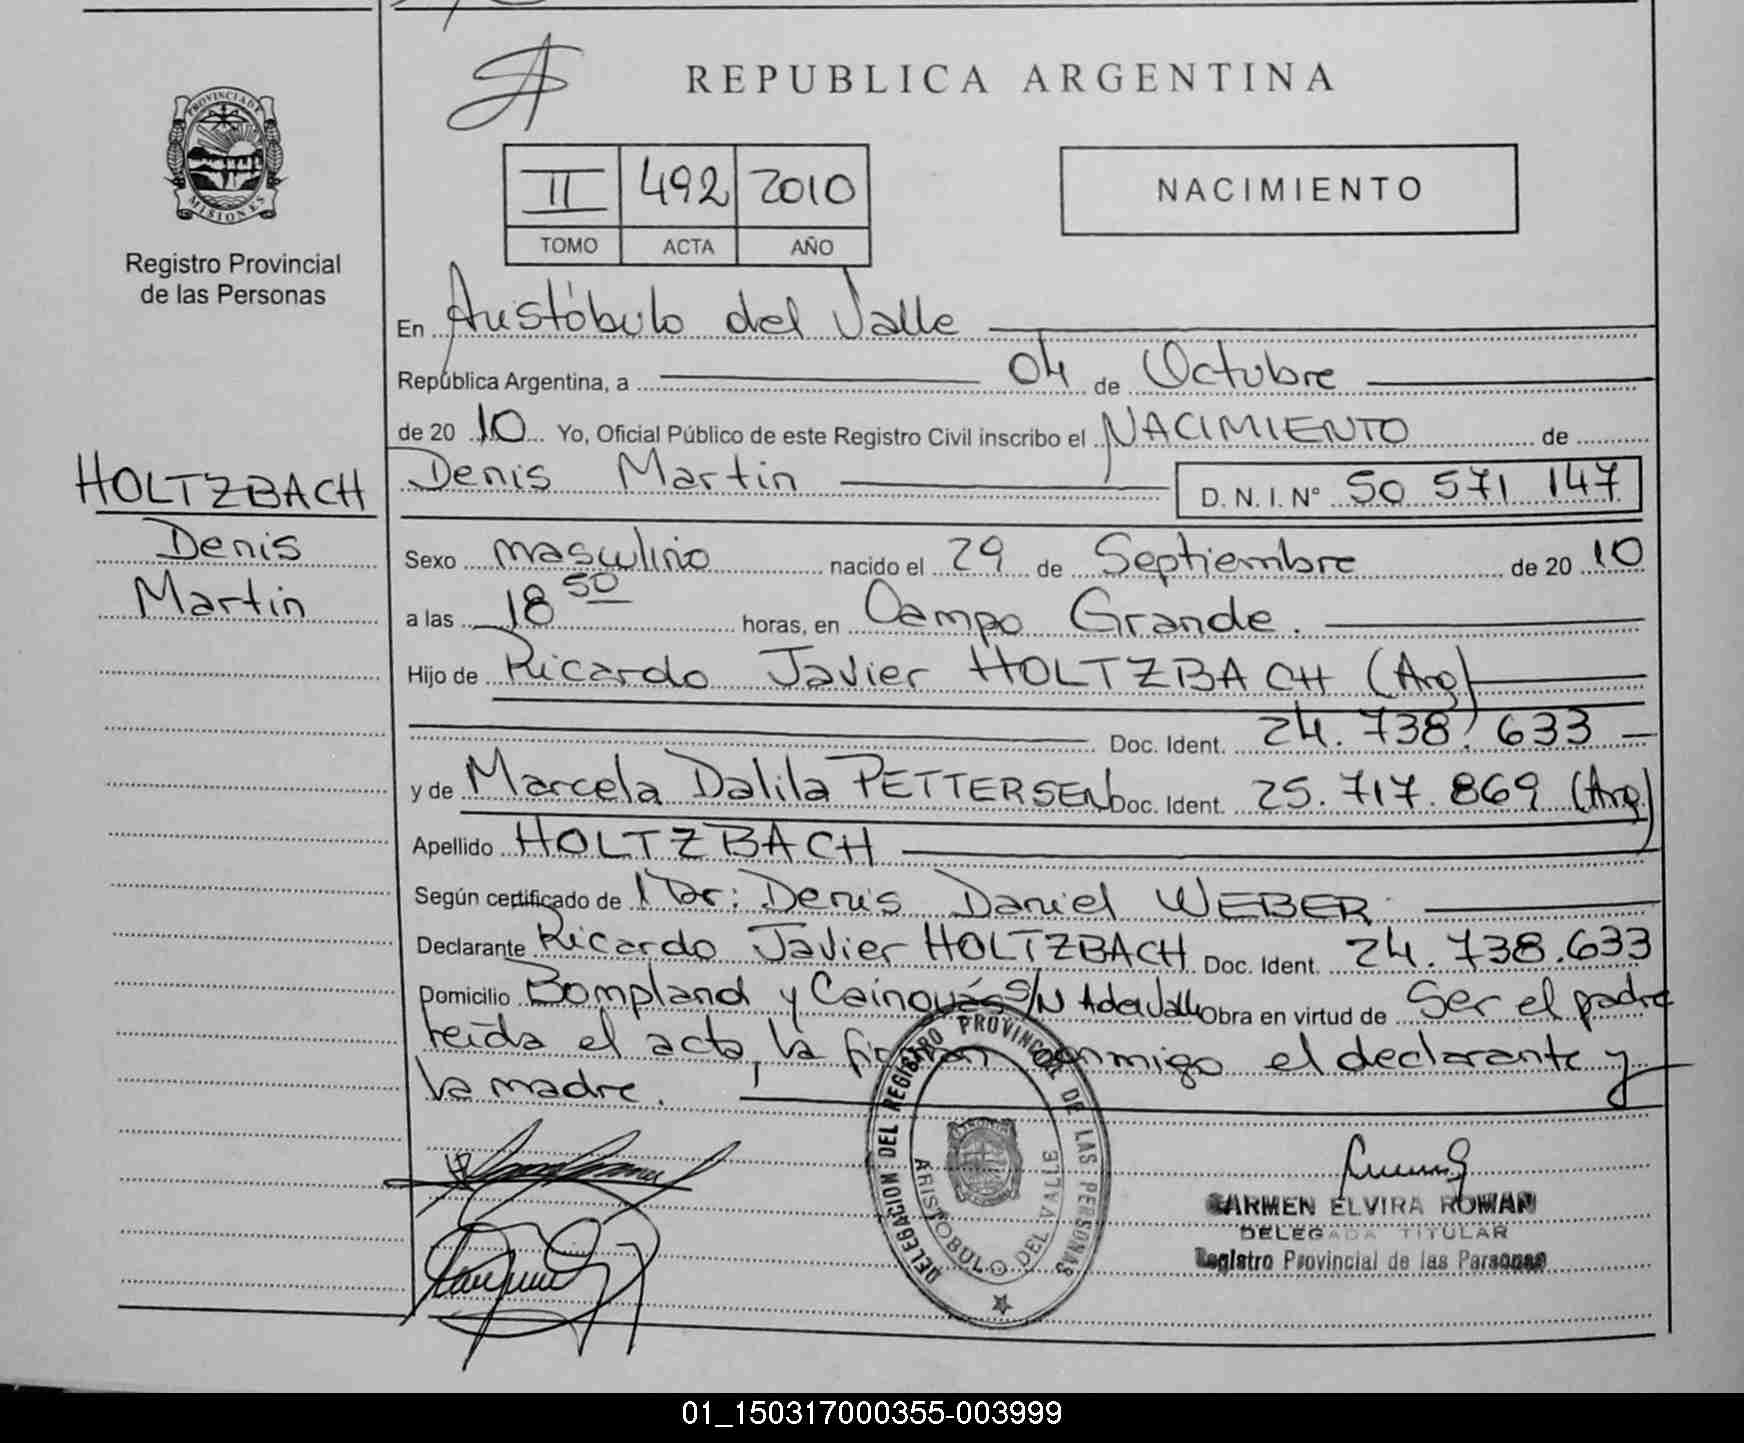 REPUBLICA ARGENTINA
PROVINCIA DE
MISIONES
Registro Provincial
de las Personas
II 492 2010
TOMO ACTA AÑO
NACIMIENTO
En Aristóbulo del Valle
República Argentina, a 04 de Octubre
de 20 10 Yo, Oficial Público de este Registro Civil inscribo el NACIMIENTO de
HOLTZBACH
Denis
Martin
Denis Martin D.N.I. N° 50 571 147
Sexo masculino nacido el 29 de Septiembre de 20 10
a las 18 50 horas, en Campo Grande.
Hijo de Ricardo Javier HOLTZBACH (Arg)
Doc. Ident. 24.738.633
y de Marcela Dalila PETTERSEN Doc. Ident. 25.717.869 (Arg)
Apellido HOLTZBACH
Según certificado de Dr: Denis Daniel WEBER
Declarante Ricardo Javier HOLTZBACH Doc. Ident. 24.738.633
Domicilio Bompland y Cainguás S/N A del Valle Obra en virtud de Ser el padre
leída el acta, la firman conmigo el declarante y
la madre.
DELEGACION DEL REGISTRO PROVINCIAL DE LAS PERSONAS
ARISTOBULO DEL VALLE
CARMEN ELVIRA ROMAN
DELEGADA TITULAR
Registro Provincial de las Personas
01_150317000355-003999